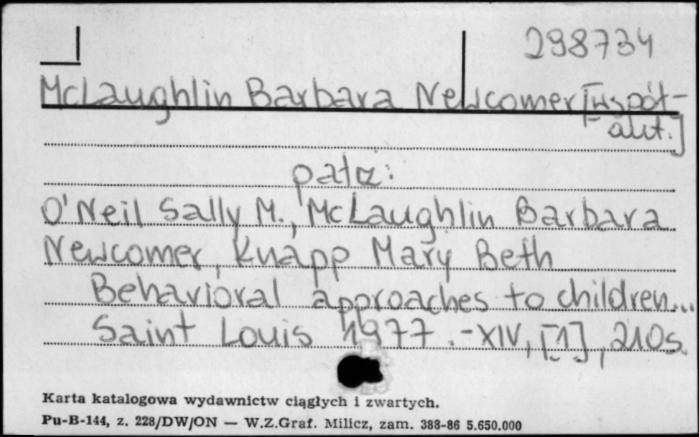 298734
McLaughlin Barbara Newcomer [współ-
aut.]
patrz:
O'Neil Sally M., McLaughlin Barbara
Newcomer, Knapp Mary Beth
Behavioral approaches to children...
Saint Louis 1977. - XIV, [1], 210s.
Karta katalogowa wydawnictw ciągłych i zwartych.
Pu-B-144, z. 228/DW/ON — W.Z.Graf. Milicz, zam. 388-86 5.650.000